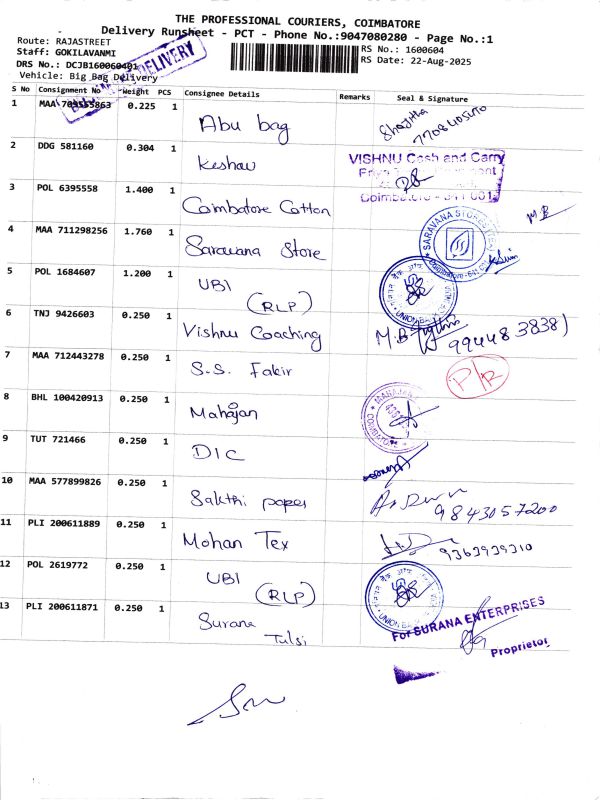 THE PROFESSIONAL COURIERS, COIMBATORE
Delivery Runsheet - PCT - Phone No.:9047080280 - Page No.:1
Route: RAJASTREET
RS No.: 1600604
Staff: GOKILAVANMI
RS Date: 22-Aug-2025
DRS No.: DCJB160060401
DELIVERY
Vehicle: Big Bag Delivery
S No Consignment No Weight PCS Consignee Details Remarks Seal & Signature
1 MAA 709555863 0.225 1 Abu bag
2 DDG 581160 0.304 1 Keshav
VISHNU Cash and Carry
3 POL 6395558 1.400 1 Coimbatore Cotton
M.B
4 MAA 711298256 1.760 1 Saravana Store
SARAVANA STORES
5 POL 1684607 1.200 1 UBI
(RLP)
6 TNJ 9426603 0.250 1 Vishnu Coaching
7 MAA 712443278 0.250 1 S.S. Fakir
P/R
8 BHL 100420913 0.250 1 Mahajan
9 TUT 721466 0.250 1 DIC
10 MAA 577899826 0.250 1 Sakthi paper
9843057200
11 PLI 200611889 0.250 1 Mohan Tex
9363939310
12 POL 2619772 0.250 1 UBI
(RLP)
13 PLI 200611871 0.250 1 Surana
Tulsi
For SURANA ENTERPRISES
Proprietor